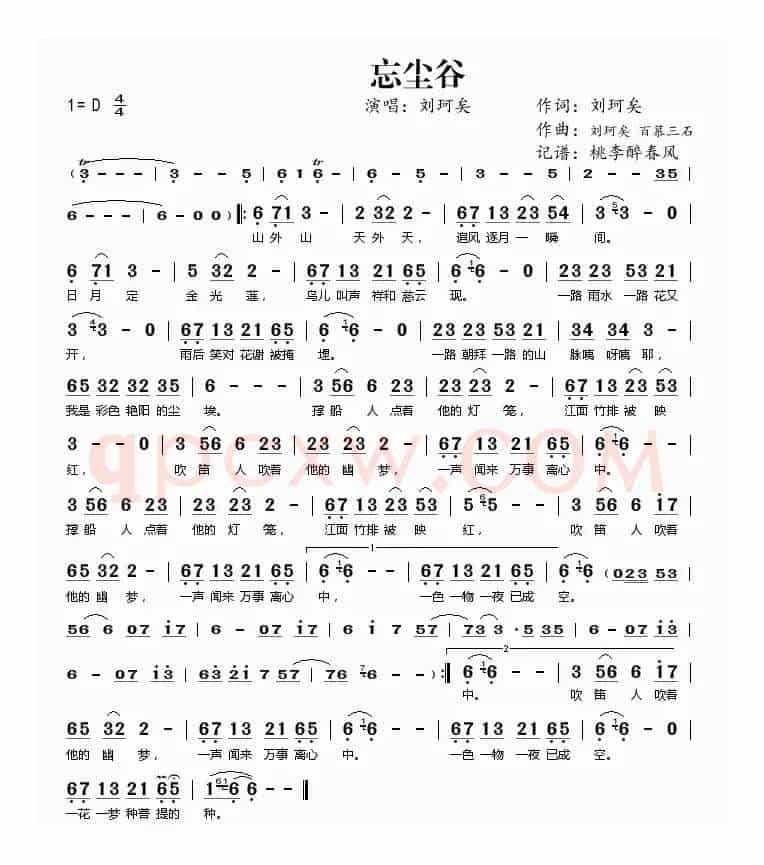 忘尘谷
1= D 4/4
演唱：刘珂矣 作词：刘珂矣
作曲：刘珂矣 百慕三石
记谱：桃李醉春风
( 3 - - - | 3 - - 5 | 6 1 6 - - | 6 - - 5 | 3 - - 5 | 2 - - 35 |
6 - - - | 6 - 0 0 ) ‖: 6 71 3 - | 2 32 2 - | 67 13 23 54 | 3 5 3 - 0 |
山外山 天外天， 追风逐月一瞬间。
6 71 2 - | 5 32 2 - | 67 13 21 65 | 6 1 6 - 0 | 23 23 53 21 |
日月定 金光莲， 鸟儿叫声祥和慈云现。 一路雨水一路花又
3 4 3 - 0 | 67 13 21 65 | 6 1 6 - 0 | 23 23 53 21 | 35 35 3 - |
开， 雨后笑对花谢被掩埋。 一路朝拜一路的山脉咦呀咦耶，
65 32 32 35 | 6 - - - | 3 56 6 23 | 23 23 2 - | 67 13 23 53 |
我是彩色艳阳的尘埃。 撑船人点着他的灯笼， 江面竹排被映
3 - - 0 | 3 56 6 23 | 23 23 2 - | 67 13 21 65 | 6 1 6 - 0 |
红， 吹笛人吹着他的幽梦， 一声闻来万事离心中。
qpcxw.COM
3 56 6 23 | 23 23 2 - | 67 13 23 53 | 5 6 5 - 0 | 3 56 6 17 |
撑船人点着他的灯笼， 江面竹排被映红， 吹笛人吹着
1
65 32 2 - | 67 13 21 65 | 6 1 6 - 0 | 67 13 21 65 | 6 1 6 - (023 53 |
他的幽梦， 一声闻来万事离心中， 一色一物一夜已成空。
56 6 07 17 | 6 - 07 17 | 6 1 7 57 | 73 3·535 | 6 - 07 13 |
2
6 - 07 13 | 63 21 7 57 | 57 76 7 6 - - ) :‖ 6 1 6 - 0 | 3 56 6 17 |
中。 吹笛人吹着
65 32 2 - | 67 13 21 65 | 6 1 6 - 0 | 67 13 21 65 | 6 1 6 - 0 |
他的幽梦， 一声闻来万事离心中。 一色一物一夜已成空。
67 13 21 65 | 1 61 6 6 - - ‖
一花一梦种菩提的种。